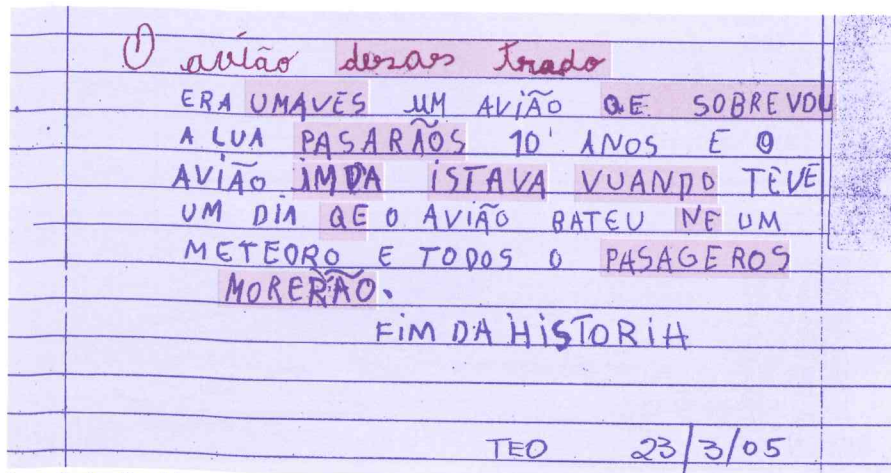 O avião desas trado
ERA UMAVES UM AVIÃO QE SOBREVOU
A LUA PASARÃOS 10 ANOS E O
AVIÃO IMDA ISTAVA VUANDO TEVE
UM DIA QE O AVIÃO BATEU NE UM
METEORO E TODOS O PASAGEROS
MORERÃO.
FIM DA HISTORIA
TEO 23/3/05